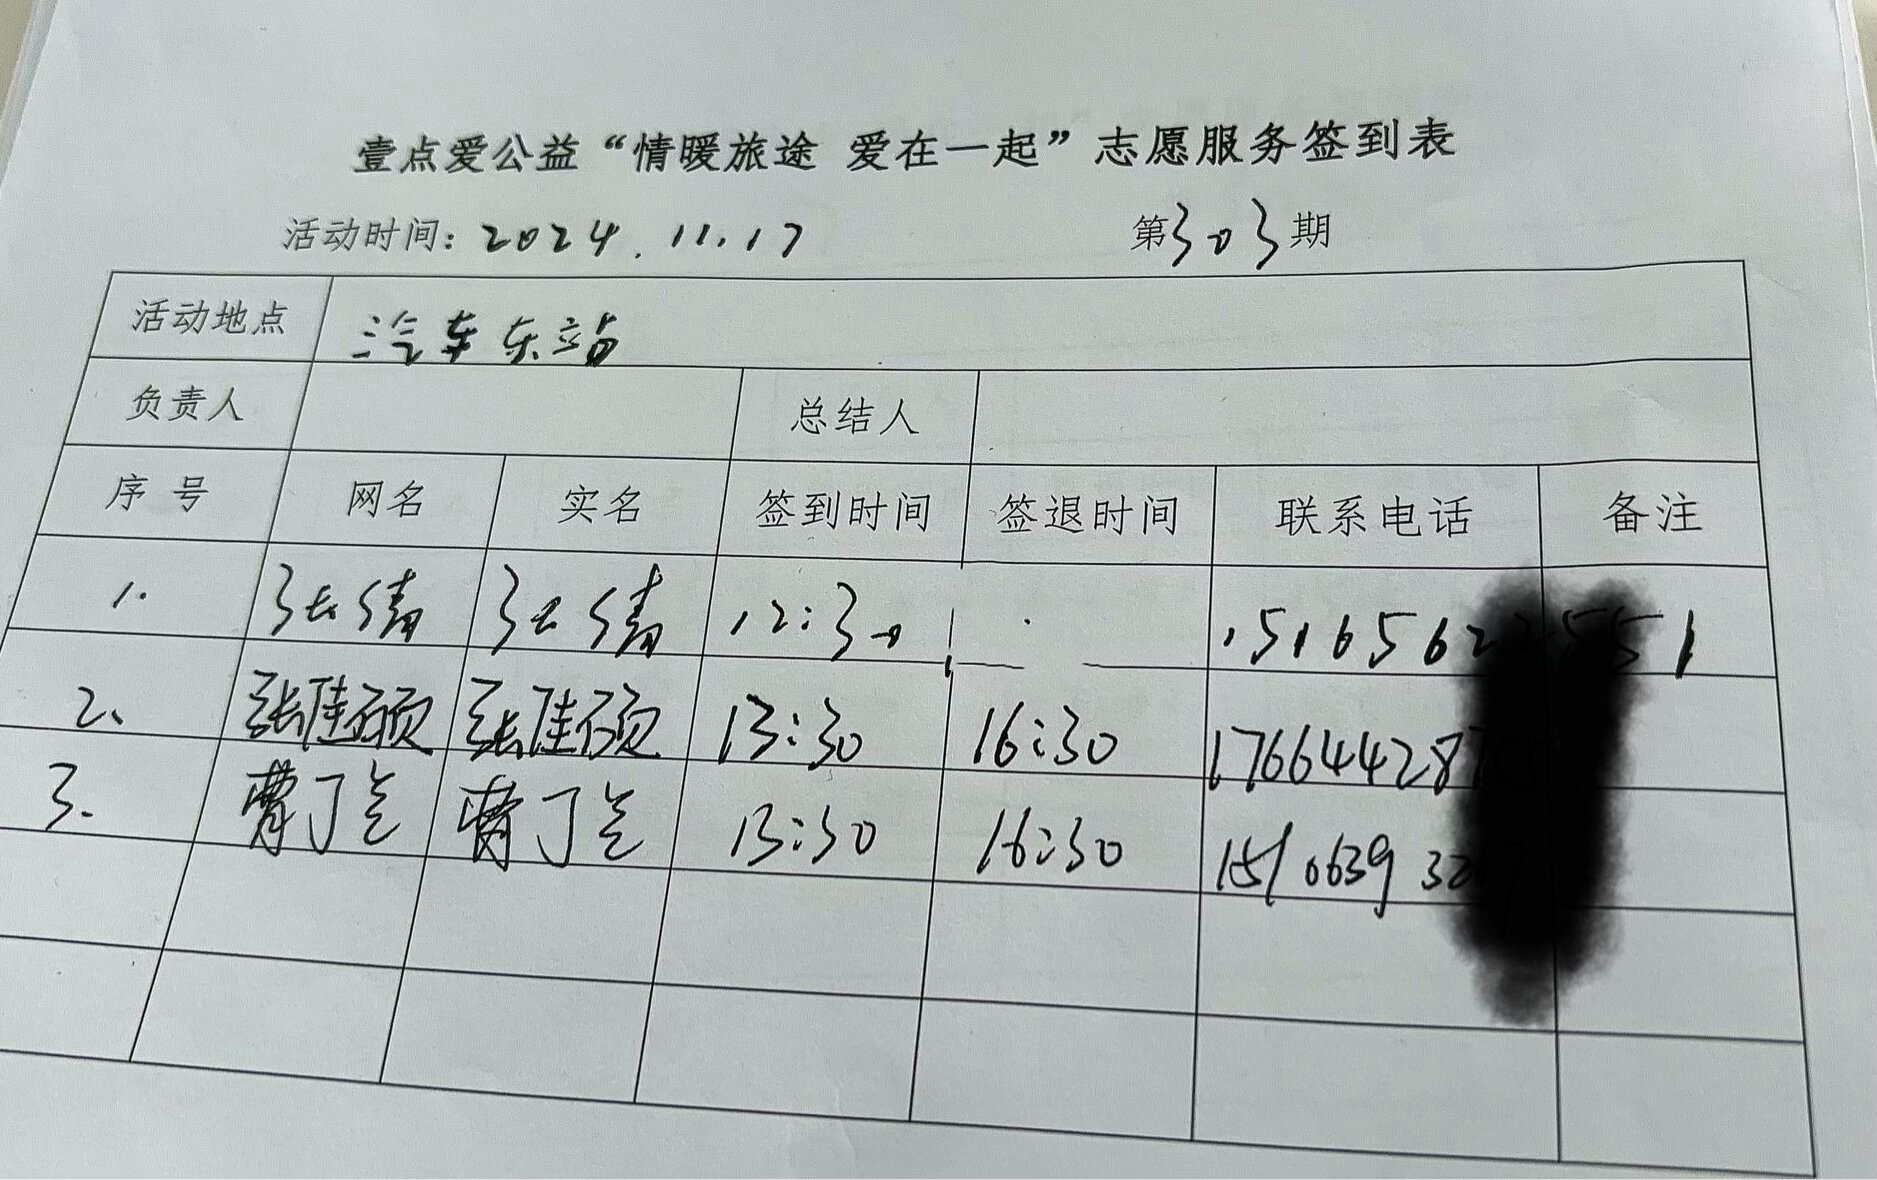 壹点爱公益“情暖旅途 爱在一起”志愿服务签到表
活动时间: 2024.11.17 第303期
活动地点 汽车东站
负责人 总结人
序号 网名 实名 签到时间 签退时间 联系电话 备注
1. 张倩 张倩 12:30
2、 张佳硕 张佳硕 13:30 16:30
3. 曹丁兰 曹丁兰 13:30 16:30